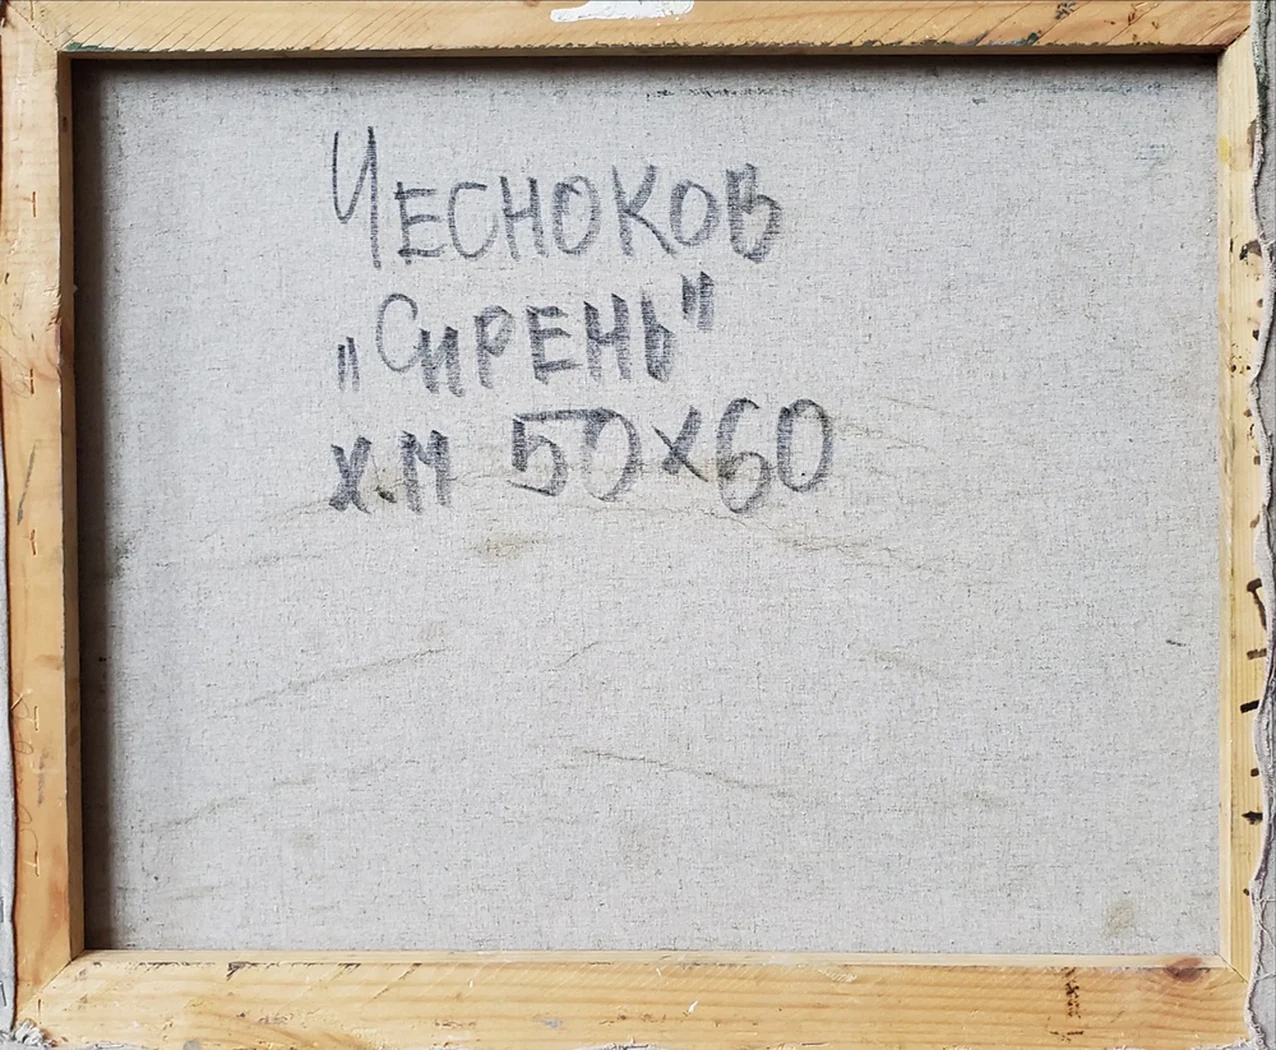 Чесноков
"Сирень"
х.м 50х60